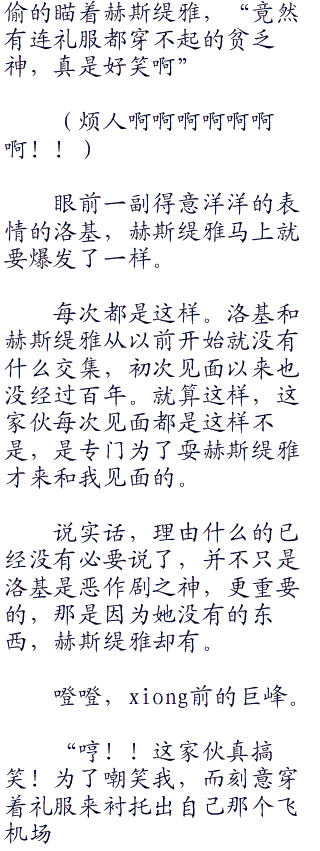 偷的瞄着赫斯缇雅，“竟然
有连礼服都穿不起的贫乏
神，真是好笑啊”
（烦人啊啊啊啊啊啊
啊！！）
眼前一副得意洋洋的表
情的洛基，赫斯缇雅马上就
要爆发了一样。
每次都是这样。洛基和
赫斯缇雅从以前开始就没有
什么交集，初次见面以来也
没经过百年。就算这样，这
家伙每次见面都是这样不
是，是专门为了耍赫斯缇雅
才来和我见面的。
说实话，理由什么的已
经没有必要说了，并不只是
洛基是恶作剧之神，更重要
的，那是因为她没有的东
西，赫斯缇雅却有。
噔噔，xiong前的巨峰。
“哼！！这家伙真搞
笑！为了嘲笑我，而刻意穿
着礼服来衬托出自己那个飞
机场